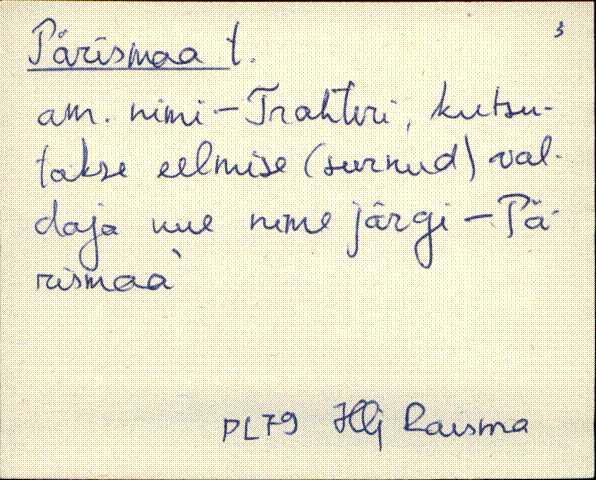 Pärismaa t. 3
am. nimi – Trahteri, kutsu-
takse eelmise (surnud) val-
daja uue nime järgi – Pä-
rismaa
PL79 Raisma